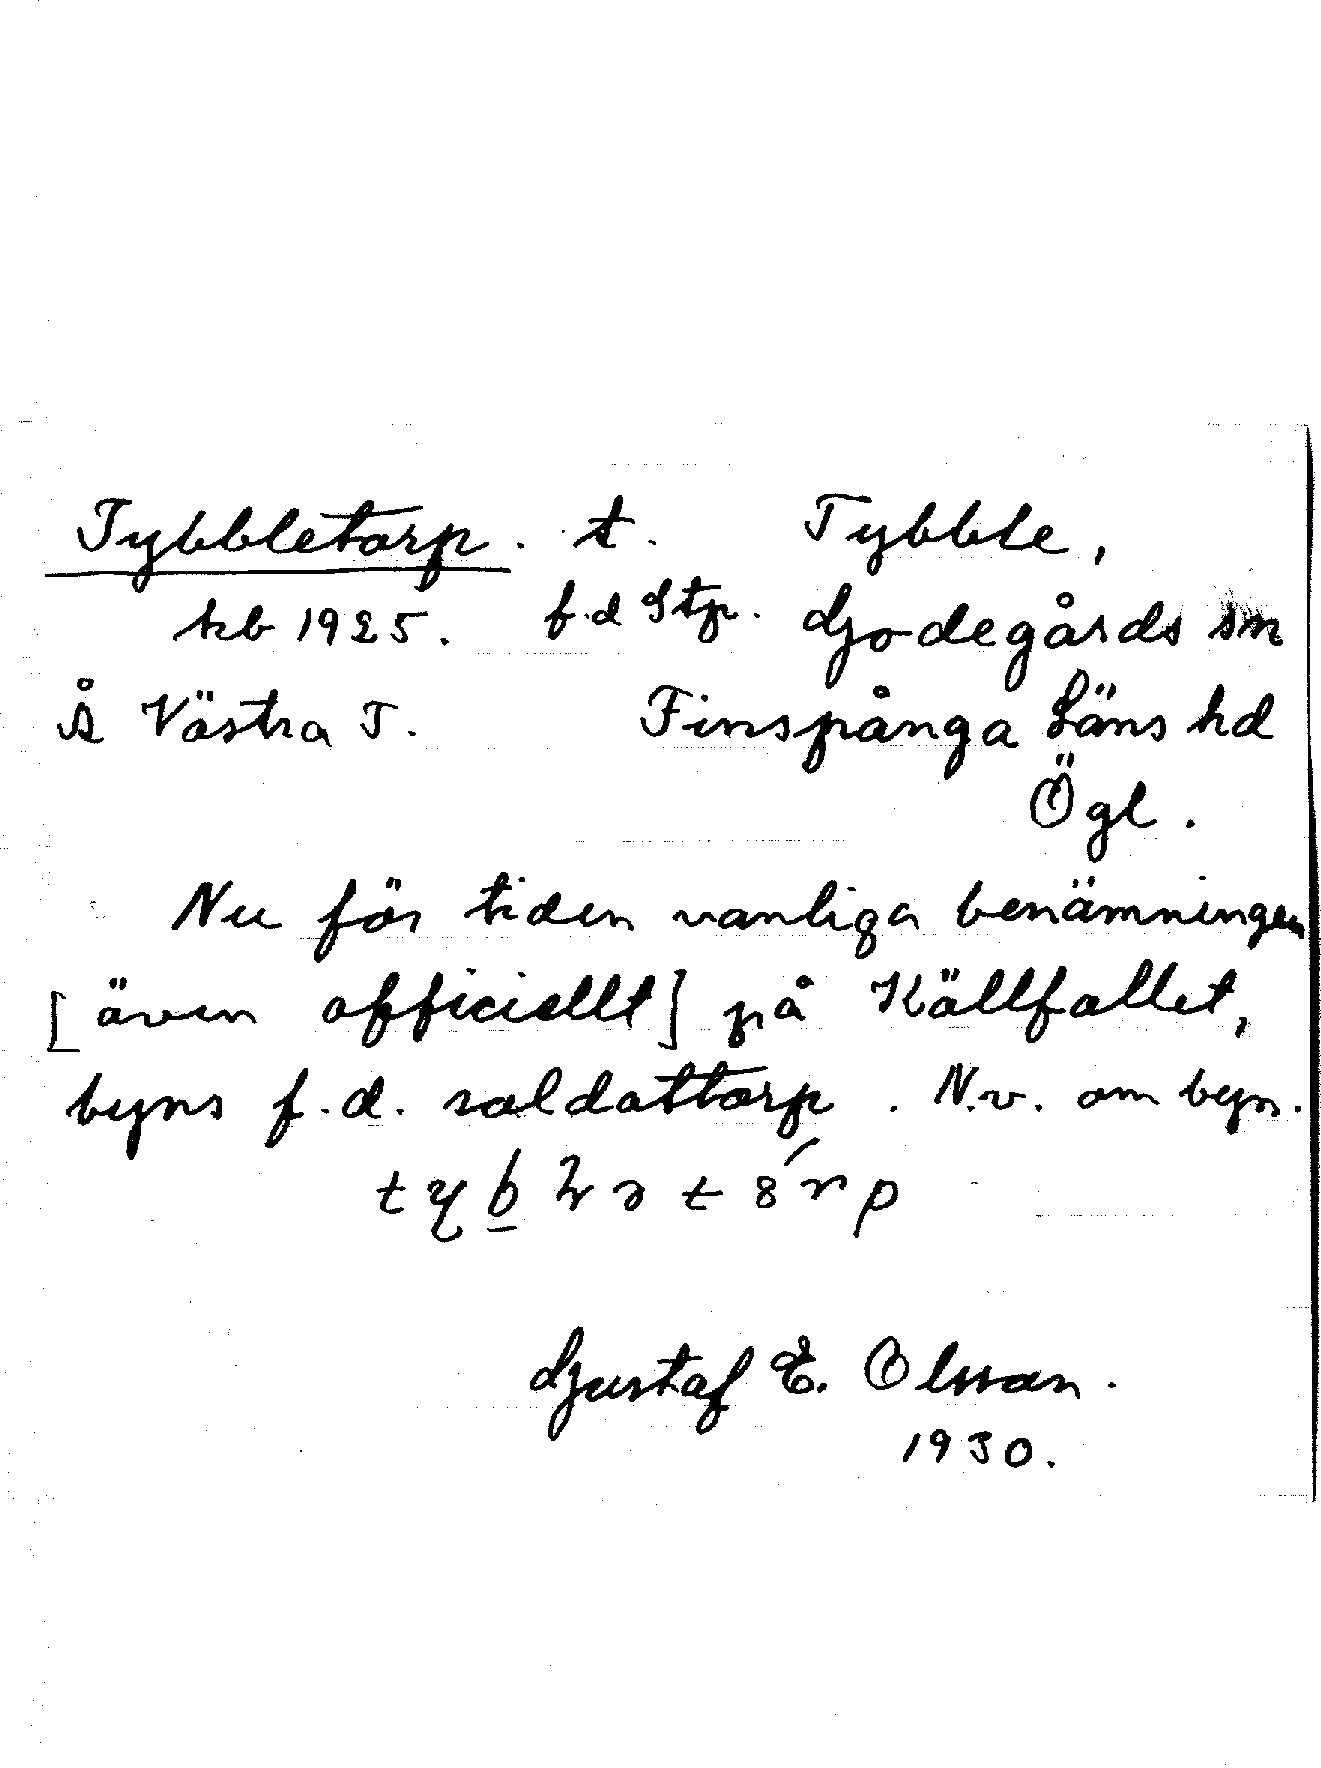 Tybbletorp. t. Tybble,
kb 1925. f.d Stp. Godegårds sn
Å Västra T. Finspånga Läns hd
Ögl.
Nu för tiden vanliga benämningen
[även officiellt] på Källfallet,
byns f.d. soldattorp. N.v. om byn.
Gustaf E. Olsson.
1930.